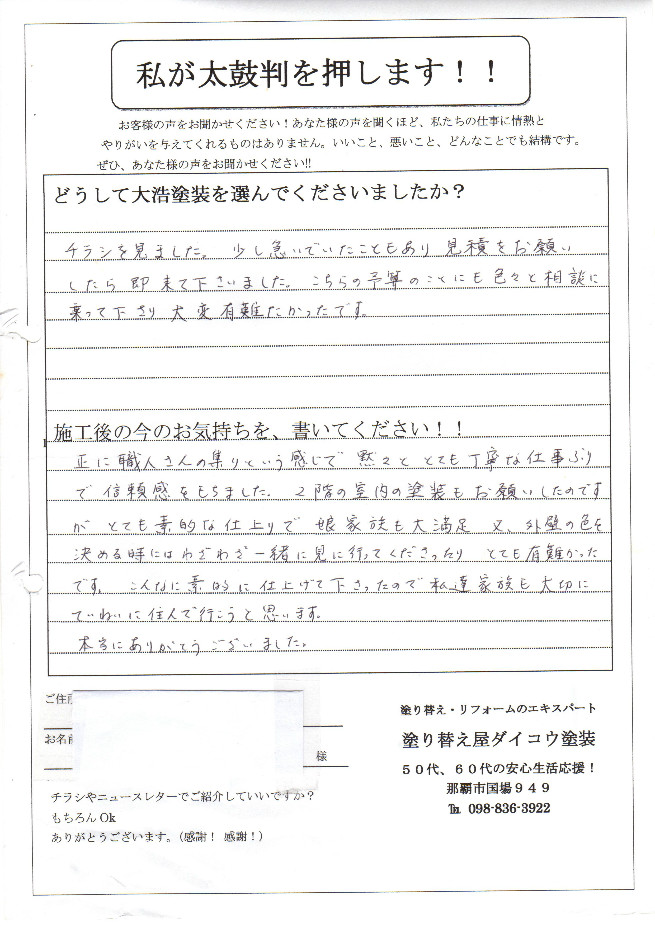 私が太鼓判を押します！！
お客様の声をお聞かせください！あなた様の声を聞くほど、私たちの仕事に情熱と
やりがいを与えてくれるものはありません。いいこと、悪いこと、どんなことでも結構です。
ぜひ、あなた様の声をお聞かせください!!
どうして大浩塗装を選んでくださいましたか？
チラシを見ました。少し急いでいたこともあり 見積をお願い
したら 即 来て下さいました。こちらの予算のことにも色々と相談に
乗って下さり 大変有難たかったです。
施工後の今のお気持ちを、書いてください！！
正に職人さんの集りという感じで 黙々と とても丁寧な仕事ぶり
で 信頼感をもちました。2階の室内の塗装もお願いしたのです
が とても素的な仕上りで 娘家族も大満足 又、外壁の色を
決める時にはわざわざ一緒に見に行ってくださったり とても有難かった
です。こんなに素的に仕上げて下さったので私達家族も大切に
ていねいに住んで行こうと思います。
本当にありがとうございました。
ご住所
お名前
様
チラシやニュースレターでご紹介していいですか？
もちろん Ok
ありがとうございます。（感謝！ 感謝！）
塗り替え・リフォームのエキスパート
塗り替え屋ダイコウ塗装
５０代、６０代の安心生活応援！
那覇市国場９４９
℡ 098-836-3922